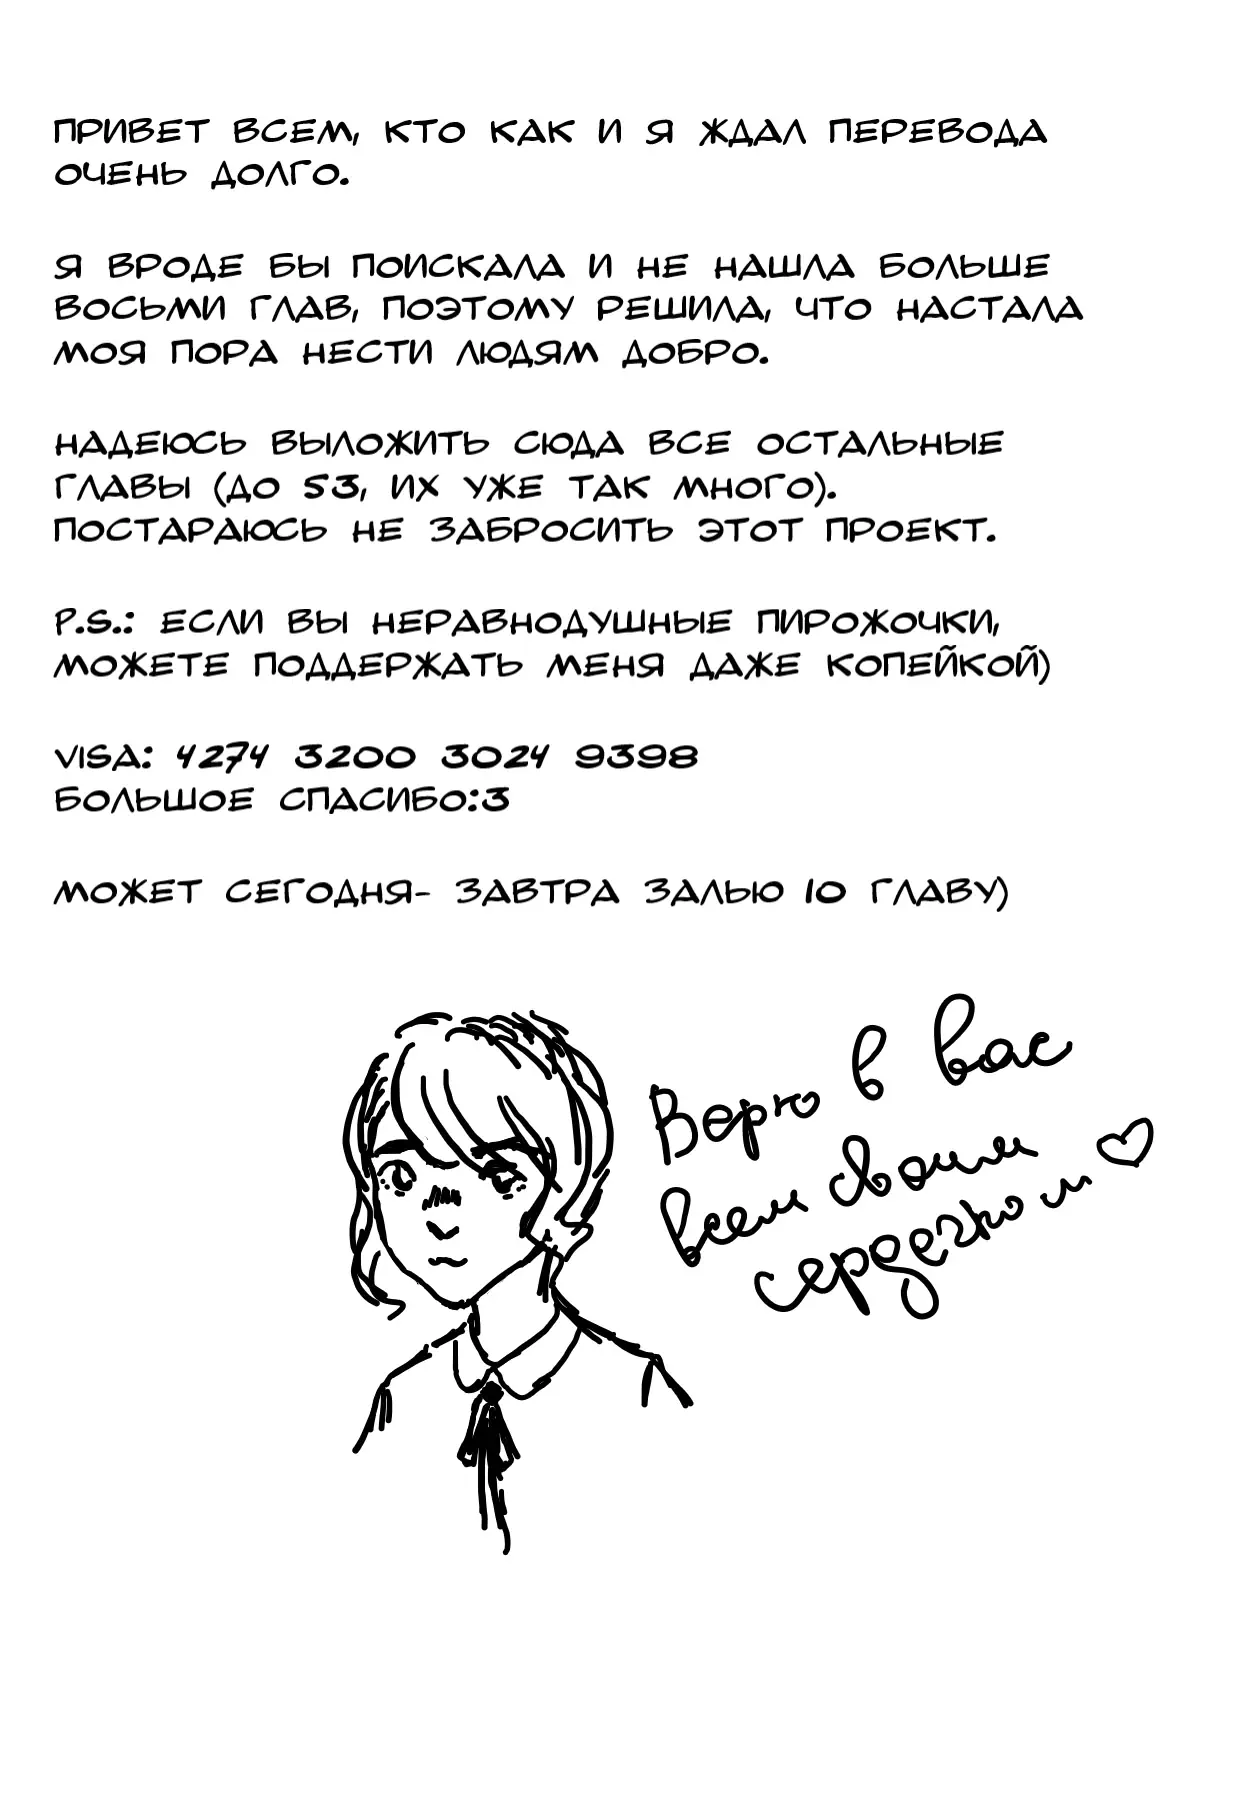 ПРИВЕТ ВСЕМ, КТО КАК И Я ЖДАЛ ПЕРЕВОДА
ОЧЕНЬ ДОЛГО.
Я ВРОДЕ БЫ ПОИСКАЛА И НЕ НАШЛА БОЛЬШЕ
ВОСЬМИ ГЛАВ, ПОЭТОМУ РЕШИЛА, ЧТО НАСТАЛА
МОЯ ПОРА НЕСТИ ЛЮДЯМ ДОБРО.
НАДЕЮСЬ ВЫЛОЖИТЬ СЮДА ВСЕ ОСТАЛЬНЫЕ
ГЛАВЫ (ДО 53, ИХ УЖЕ ТАК МНОГО).
ПОСТАРАЮСЬ НЕ ЗАБРОСИТЬ ЭТОТ ПРОЕКТ.
P.S.: ЕСЛИ ВЫ НЕРАВНОДУШНЫЕ ПИРОЖОЧКИ,
МОЖЕТЕ ПОДДЕРЖАТЬ МЕНЯ ДАЖЕ КОПЕЙКОЙ)
VISA: 4274 3200 3024 9398
БОЛЬШОЕ СПАСИБО:3
МОЖЕТ СЕГОДНЯ- ЗАВТРА ЗАЛЬЮ 10 ГЛАВУ)
Верю в вас
всем своим
сердечком ♡